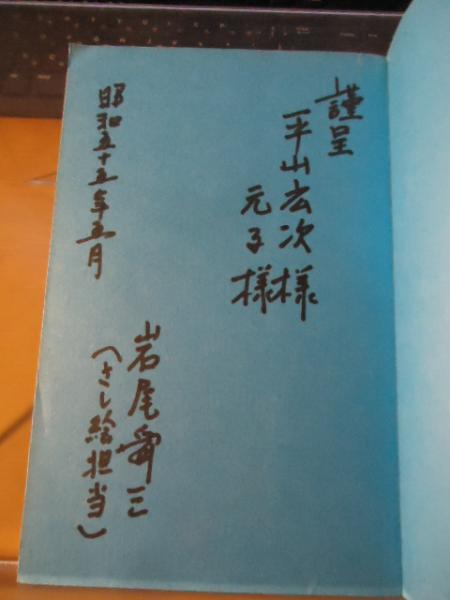 謹呈
平山宏次様
元子様
昭和五十五年五月
岩尾舜三
(さし絵担当)